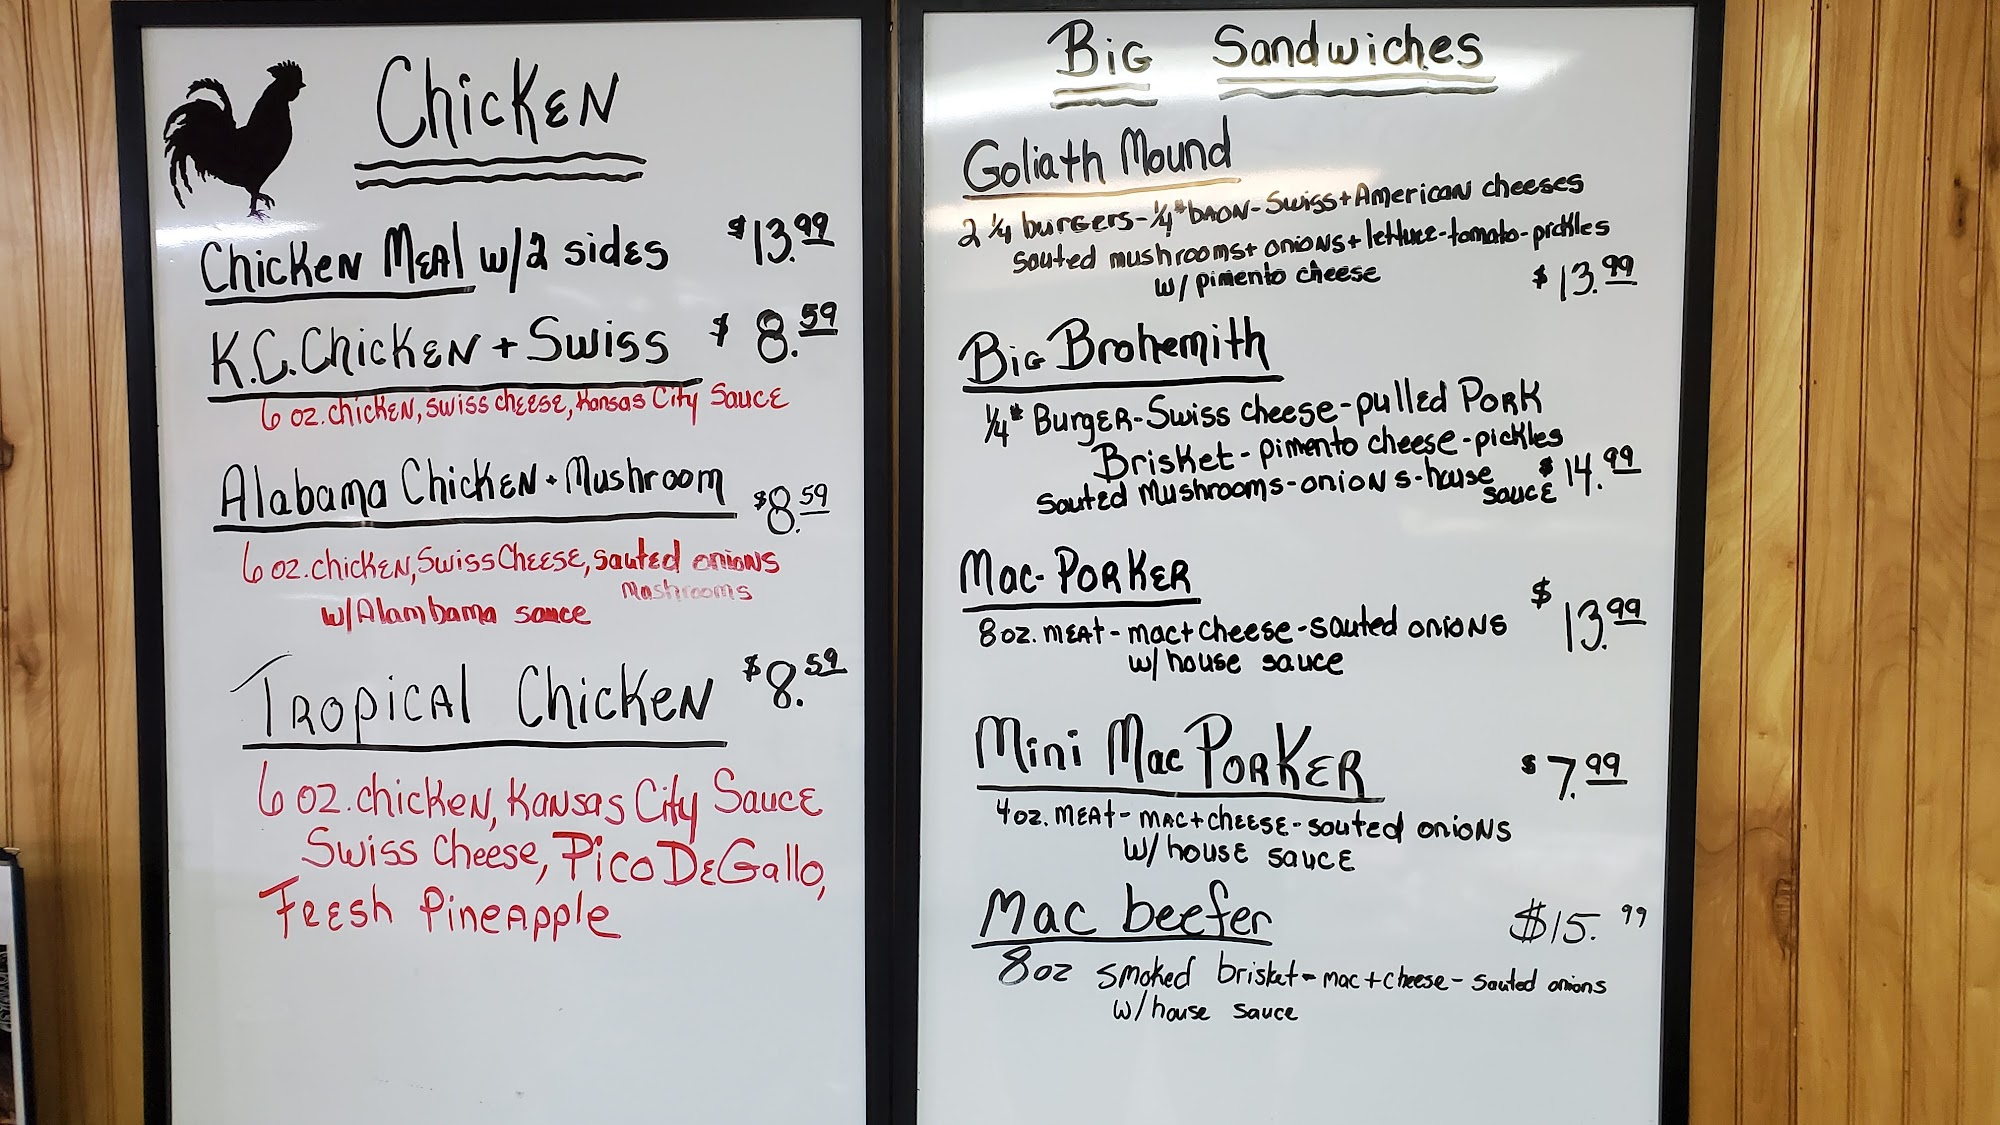 Chicken
Chicken Meal w/2 sides $13.99
K.C. Chicken + Swiss $8.59
6 oz. chicken, swiss cheese, Kansas City Sauce
Alabama Chicken + Mushroom $8.59
6 oz. chicken, Swiss Cheese, sauted onions
Mushrooms
w/Alambama sauce
Tropical Chicken $8.59
6 oz. chicken, Kansas City Sauce
Swiss Cheese, Pico De Gallo,
Fresh Pineapple
Big Sandwiches
Goliath Mound
2 1/4 burgers - 1/4# baon - Swiss + American cheeses
sauted mushrooms + onions + lettuce - tomato - pickles
w/ pimento cheese $13.99
Big Brohemith
1/4# Burger - Swiss cheese - pulled Pork
Brisket - pimento cheese - pickles
sauted Mushrooms - onions - house sauce $14.99
Mac-Porker $13.99
8 oz. meat - mac + cheese - sauted onions
w/ house sauce
Mini Mac Porker $7.99
4 oz. meat - mac + cheese - sauted onions
w/ house sauce
Mac beefer $15.99
8 oz smoked brisket - mac + cheese - sauted onions
w/ house sauce